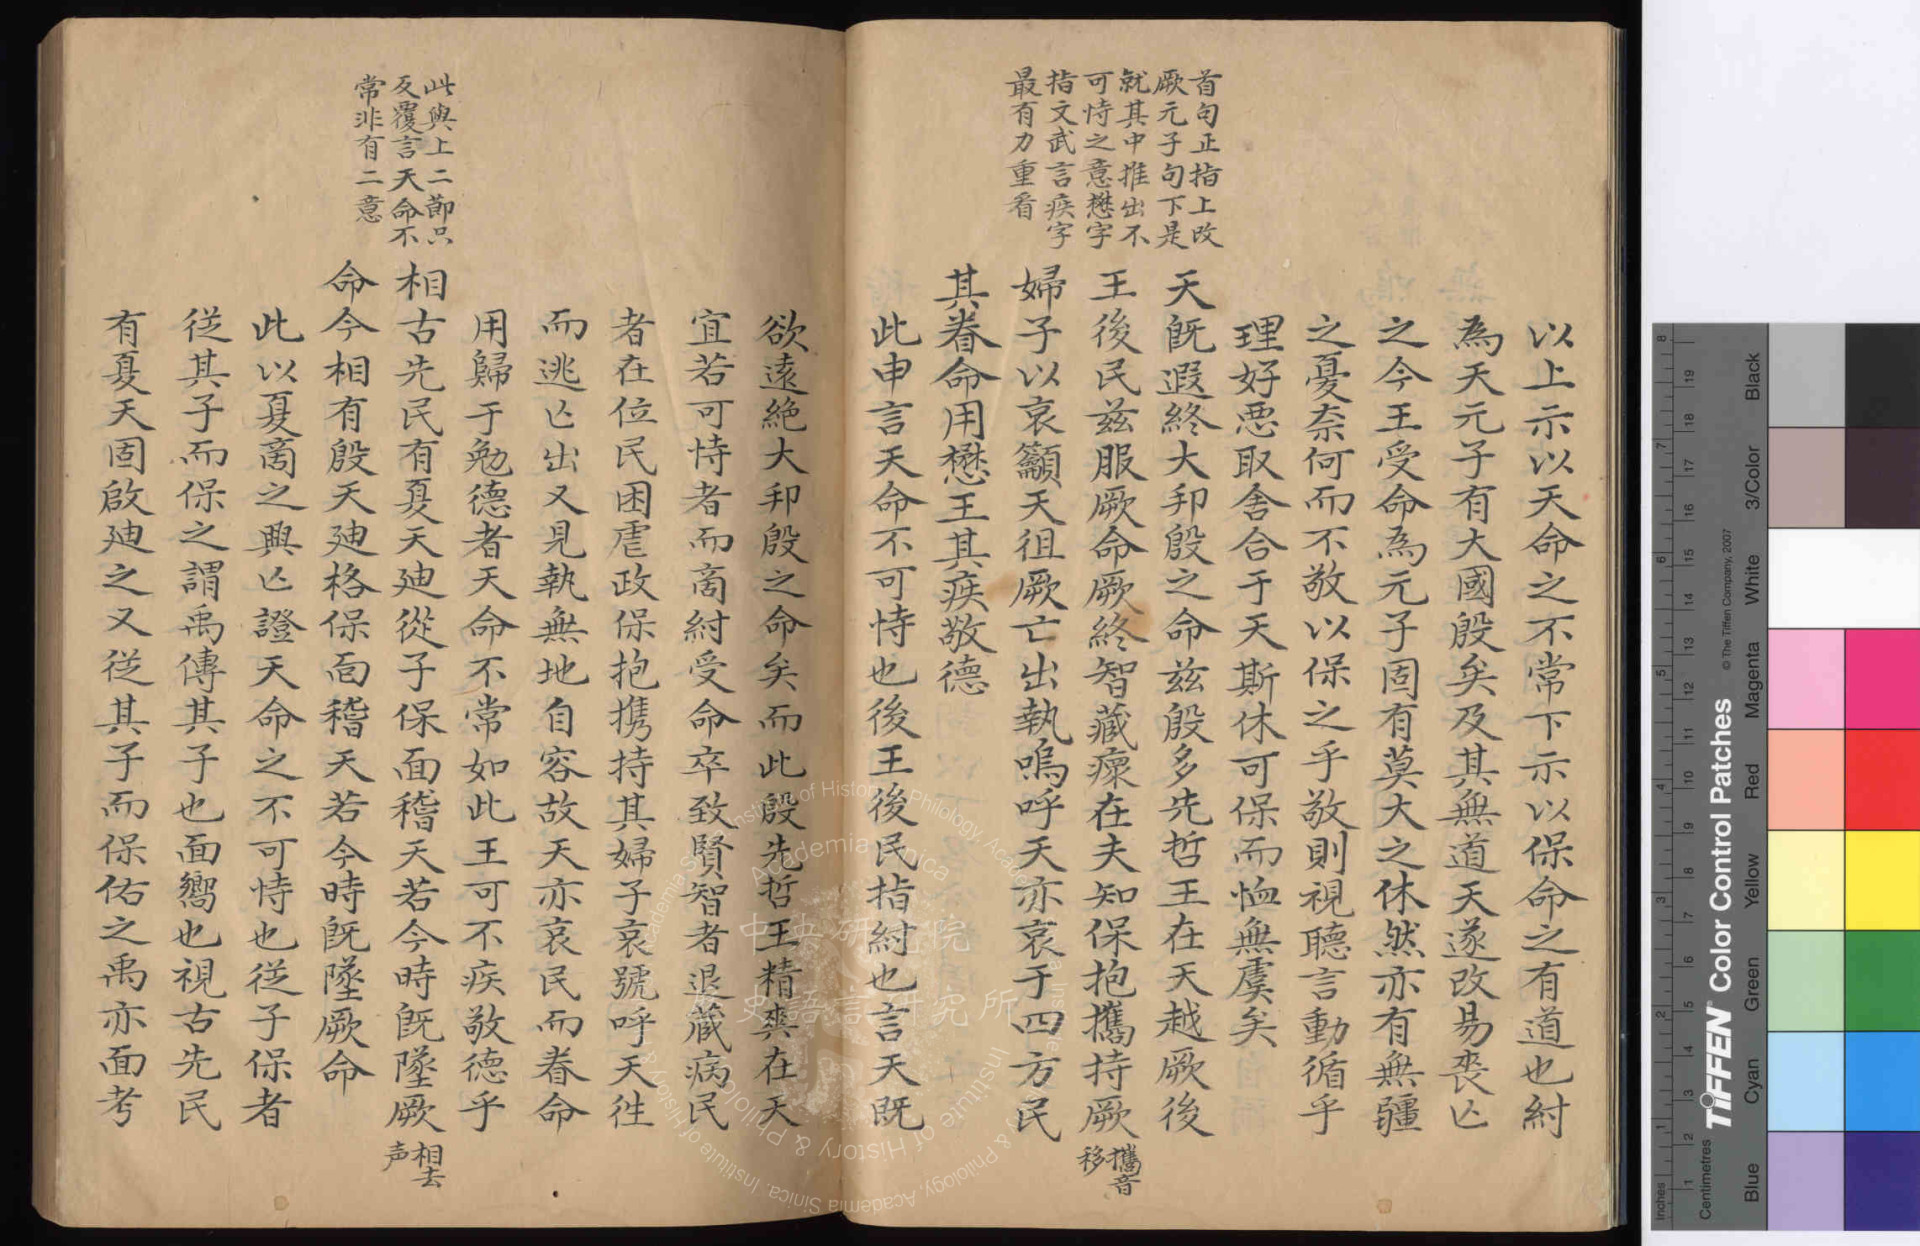 首句正指上改
厥元子句下是
就其中推出不
可恃之意懋字
指文武言疾字
最有力重看
以上示以天命之不常下示以保命之有道也紂
為天元子有大國殷矣及其無道天遂改易喪亾
之今王受命為元子固有莫大之休然亦有無疆
之憂奈何而不敬以保之乎敬則視聽言動循乎
理好惡取舍合于天斯休可保而恤無虞矣
天既遐終大邦殷之命茲殷多先哲王在天越厥後
王後民茲服厥命厥終智藏瘝在夫知保抱攜持厥
攜音
移
婦子以哀籲天徂厥亡出執嗚呼天亦哀于四方民
其眷命用懋王其疾敬德
此申言天命不可恃也後王後民指紂也言天既
欲遠絶大邦殷之命矣而此殷先哲王精爽在天
宜若可恃者而商紂受命卒致賢智者退藏病民
者在位民困虐政保抱携持其婦子哀號呼天徃
而逃亾出又見執無地自容故天亦哀民而眷命
用歸于勉德者天命不常如此王可不疾敬德乎
此與上二節只
反覆言天命不
常非有二意
相古先民有夏天廸從子保面稽天若今時旣墜厥
相去
声
命今相有殷天廸格保面稽天若今時旣墜厥命
此以夏商之興亾證天命之不可恃也從子保者
從其子而保之謂禹傳其子也面嚮也視古先民
有夏天固啟廸之又從其子而保佑之禹亦面考
中央研究院
史語言研究所
Academia Sinica
Institute of History & Philology, Academia Sinica
Inches
Centimetres
TIFFEN Color Control Patches
© The Tiffen Company, 2007
Blue
Cyan
Green
Yellow
Red
Magenta
White
3/Color
Black